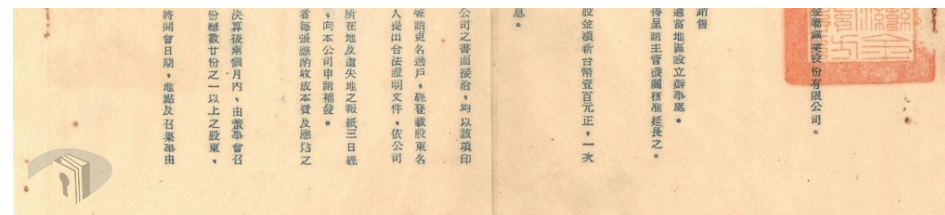 業股份有限公司。
銷售
適當地區設立辦事處。
得呈請主管機關核准延長之。
股金額新台幣壹百元正,一次
息。
公司之書面接洽,均以該項印
請更名過戶,經登載股東名
人提出合法證明文件,依公司
所在地及遺失地之報紙三日經
,向本公司申請補發。
者每張應酌收成本費及應貼之
決算後兩個月內,由董事會召
份總數廿份之一以上之股東,
將開會日期,地點及召集事由